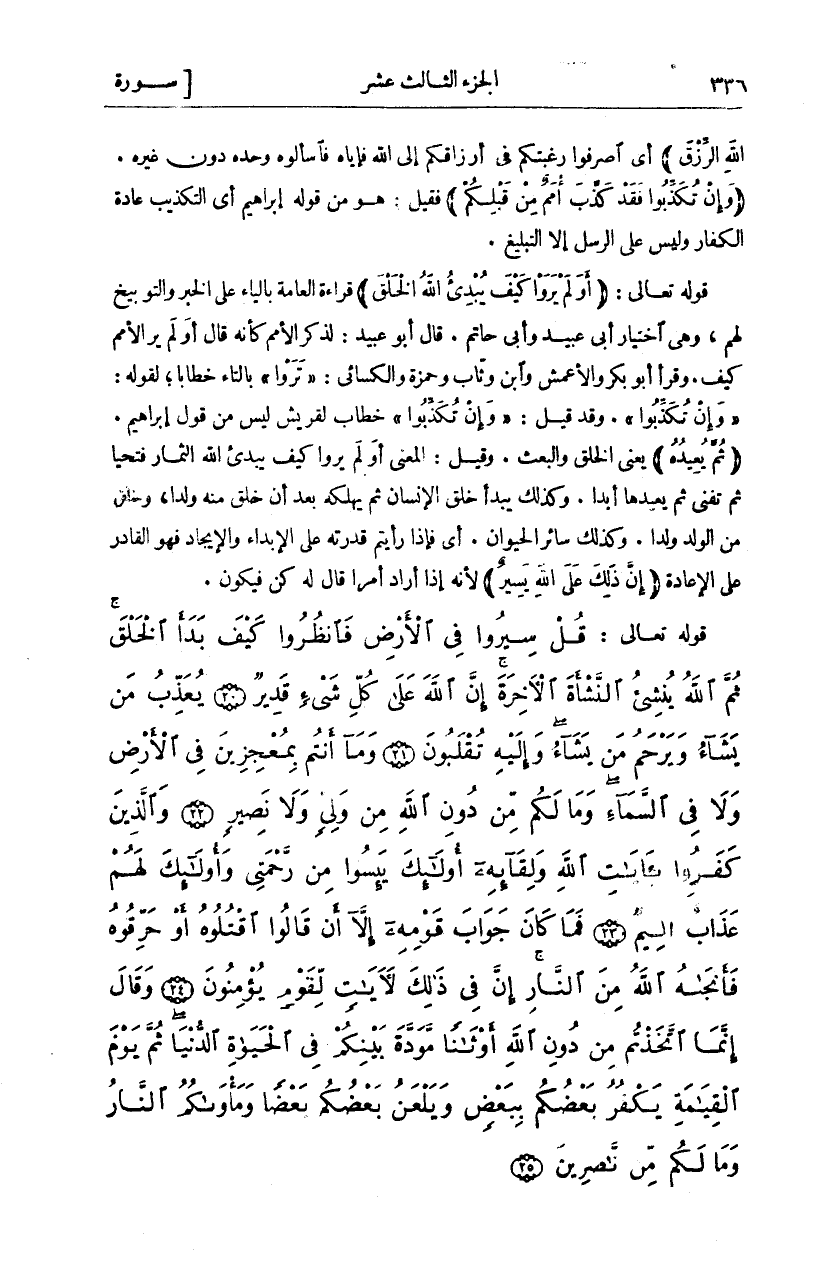 ٣٣٦ الجزء الثالث عشر [ سورة
اللهِ الرِّزْقَ ) أى آصرفوا رغبتكم فى أرزاقكم إلى الله فإياه فآسألوه وحده دون غيره .
(وَإِنْ تُكَذِّبُوا فَقَدْ كَذَّبَ أُمَمٌ مِنْ قَبْلِكُمْ) فقيل : هو من قوله إبراهيم أى التكذيب عادة
الكفار وليس على الرسل إلا التبليغ .
قوله تعالى : ( أَوَلَمْ يَرَوْا كَيْفَ يُبْدِئُ اللهُ الْخَلْقَ ) قراءة العامة بالياء على الخبر والتوبيخ
لهم ، وهى آختيار أبى عبيد وأبى حاتم . قال أبو عبيد : لذكر الأمم كأنه قال أَوَلَم ير الأمم
كيف . وقرأ أبو بكر والأعمش وآبن وثّاب وحمزة والكسائى : « تَرَوْا » بالتاء خطابا ؛ لقوله :
« وَإِنْ تُكَذِّبُوا » . وقد قيل : « وَإِنْ تُكَذِّبُوا » خطاب لقريش ليس من قول إبراهيم .
( ثُمَّ يُعِيدُهُ ) يعنى الخلق والبعث . وقيل : المعنى أَوَلَم يروا كيف يبدئ الله الثمار فتحيا
ثم تفنى ثم يعيدها أبدا . وكذلك يبدأ خلق الإنسان ثم يهلكه بعد أن خلق منه ولدا ، وخلق
من الولد ولدا . وكذلك سائر الحيوان . أى فإذا رأيتم قدرته على الإبداء والإيجاد فهو القادر
على الإعادة ( إِنَّ ذَلِكَ عَلَى اللهِ يَسِيرٌ ) لأنه إذا أراد أمرا قال له كن فيكون .
قوله تعالى : قُلْ سِيرُوا فِى ٱلْأَرْضِ فَٱنظُرُوا كَيْفَ بَدَأَ ٱلْخَلْقَۚ
ثُمَّ ٱللَّهُ يُنشِئُ ٱلنَّشْأَةَ ٱلْآخِرَةَۚ إِنَّ ٱللَّهَ عَلَىٰ كُلِّ شَىْءٍ قَدِيرٌ ﴿٢٠﴾ يُعَذِّبُ مَن
يَشَآءُ وَيَرْحَمُ مَن يَشَآءُۖ وَإِلَيْهِ تُقْلَبُونَ ﴿٢١﴾ وَمَآ أَنتُم بِمُعْجِزِينَ فِى ٱلْأَرْضِ
وَلَا فِى ٱلسَّمَآءِۖ وَمَا لَكُم مِّن دُونِ ٱللَّهِ مِن وَلِىٍّ وَلَا نَصِيرٍ ﴿٢٢﴾ وَٱلَّذِينَ
كَفَرُوا بِـَٔايَـٰتِ ٱللَّهِ وَلِقَآئِهِۦٓ أُولَـٰٓئِكَ يَئِسُوا مِن رَّحْمَتِى وَأُولَـٰٓئِكَ لَهُمْ
عَذَابٌ أَلِيمٌ ﴿٢٣﴾ فَمَا كَانَ جَوَابَ قَوْمِهِۦٓ إِلَّآ أَن قَالُوا ٱقْتُلُوهُ أَوْ حَرِّقُوهُ
فَأَنجَىٰهُ ٱللَّهُ مِنَ ٱلنَّارِۚ إِنَّ فِى ذَٰلِكَ لَآيَـٰتٍ لِّقَوْمٍ يُؤْمِنُونَ ﴿٢٤﴾ وَقَالَ
إِنَّمَا ٱتَّخَذْتُم مِن دُونِ ٱللَّهِ أَوْثَـٰنًا مَّوَدَّةَ بَيْنِكُمْ فِى ٱلْحَيَوٰةِ ٱلدُّنْيَاۖ ثُمَّ يَوْمَ
ٱلْقِيَـٰمَةِ يَكْفُرُ بَعْضُكُم بِبَعْضٍ وَيَلْعَنُ بَعْضُكُم بَعْضًا وَمَأْوَىٰكُمُ ٱلنَّارُ
وَمَا لَكُم مِّن نَّـٰصِرِينَ ﴿٢٥﴾